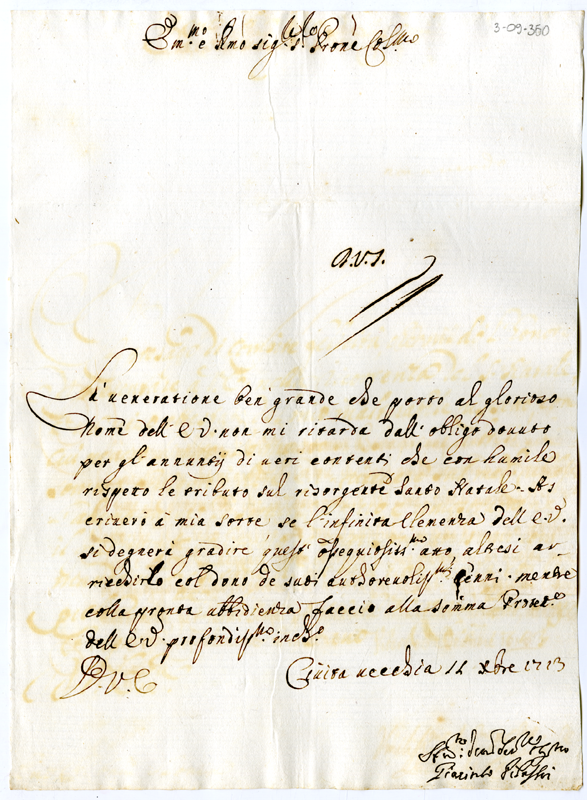 Em.mo e Rmo sig.r s.r Prone Col.mo
3-09-350
La ueneratione ben grande che porto al glorioso
Nome dell' E.V. non mi ritarda dall' obligo douuto
per gl' annuntij di ueri contenti che con humile
rispetto le tributo sul risorgente Santo Natale. As
criuerò à mia sorte se l'infinita Clemenza dell' E.V.
si degnerà gradire quest' ossequiosiss.mo atto, altresi ar
ricchirlo col dono de suoi authoreuoliss.mi Cenni. mentre
colla pronta ubbidienza faccio alla somma
dell' E.V. profondiss.mo inch.o
Ciuita uecchia 14 Xbre 1713
Giacinto